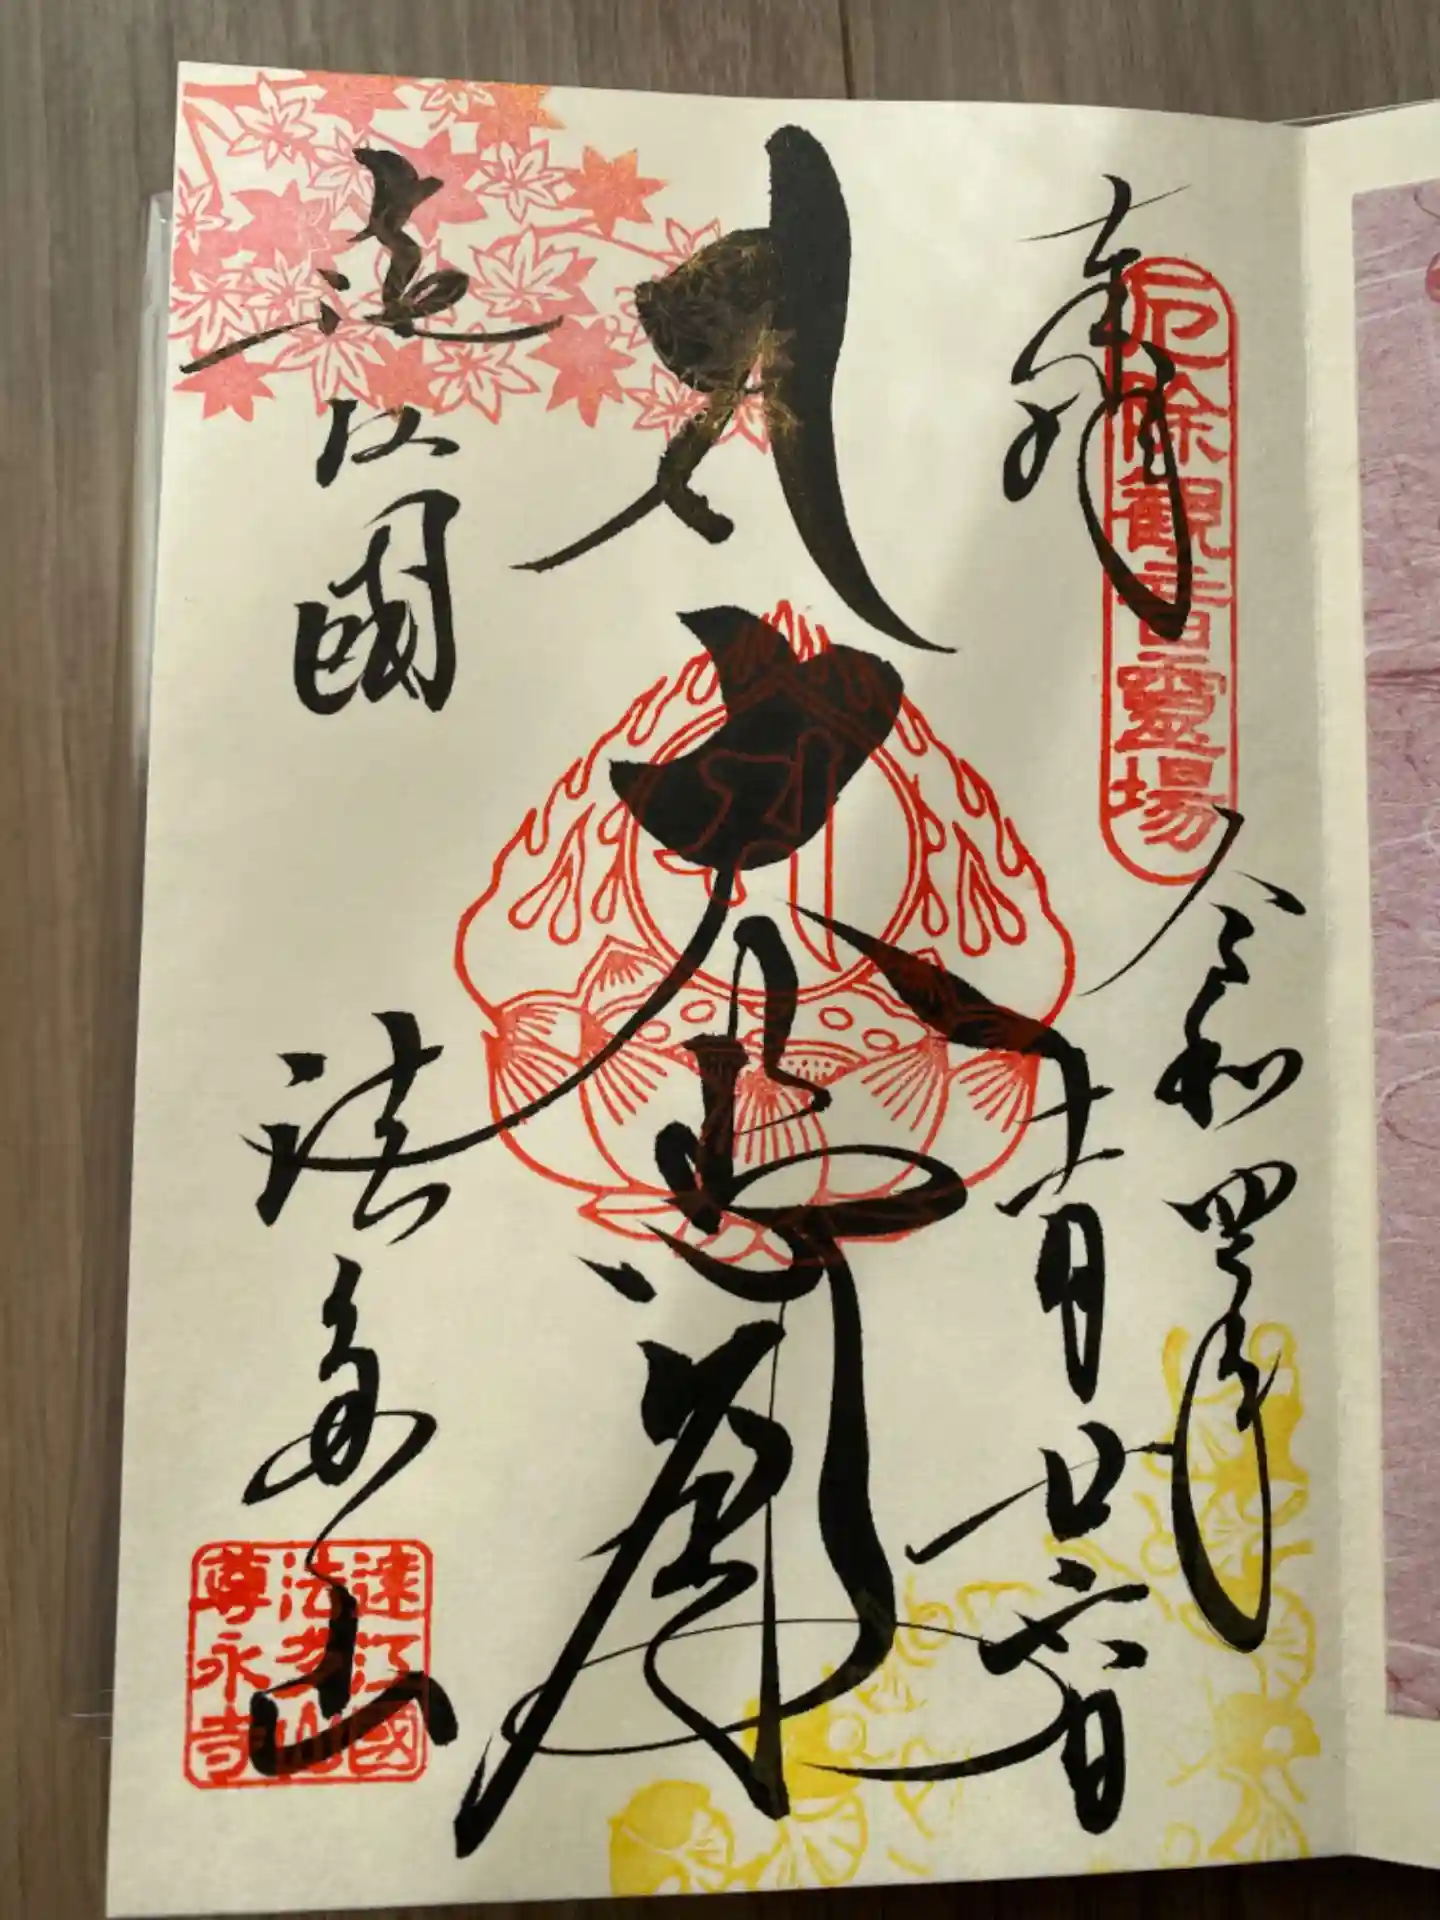 奉拝
厄除観音霊場
令和四年
十一月廿六日
大悲殿
遠江國
法多山
遠江國
法多山
尊永寺